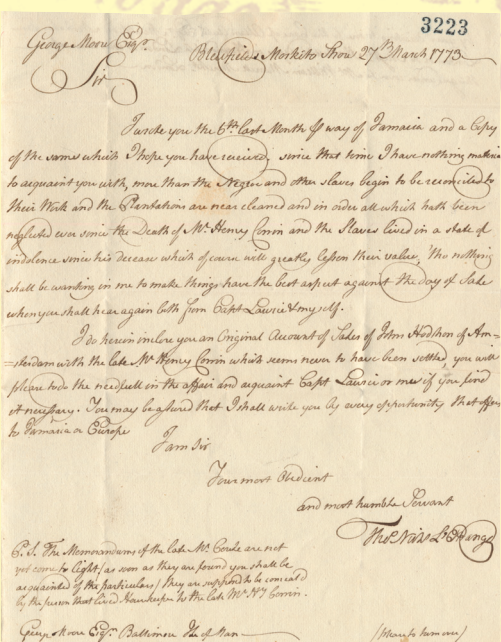 3223
George Moore Esqr.
Blewfields Moskito Shore 27th March 1773
Sir
I wrote you the 6th last Month by way of Jamaica and a Copy
of the same which I hope you have received, since that time I have nothing material
to acquaint you with, more than the Negroe and other slaves begin to be reconciled to
their Work and the Plantations are near cleaned and in order all which hath been
neglected ever since the Death of Mr. Henry Corrin and the Slaves lived in a state of
indolence since his decease which of course will greatly lessen their value, 'tho nothing
shall be wanting in me to make things have the best aspect against the day of Sale
when you shall hear again both from Capt Lawrie & myself.
I do herein inclose you an Original Account of Sales of John Hodshon of Am=
=sterdam with the late Mr. Henry Corrin which seems never to have been settled, you will
please to do the needfull in the affair and acquaint Capt Lawrie or me if you find
it necessary. You may be assured that I shall write you by every opportunity that offers
to Jamaica or Europe
I am Sir
Your most Obedient
and most humble Servant
Thos.
P.S. The Memorandums of the late Mr. are not
yet come to light, as soon as they are found you shall be
acquainted of the particulars, they are supposed to be conceal'd
by the person that lived Housekeeper to the late Mr. Hy Corrin.
George Moore Esqr. Baltimore Isle of Man